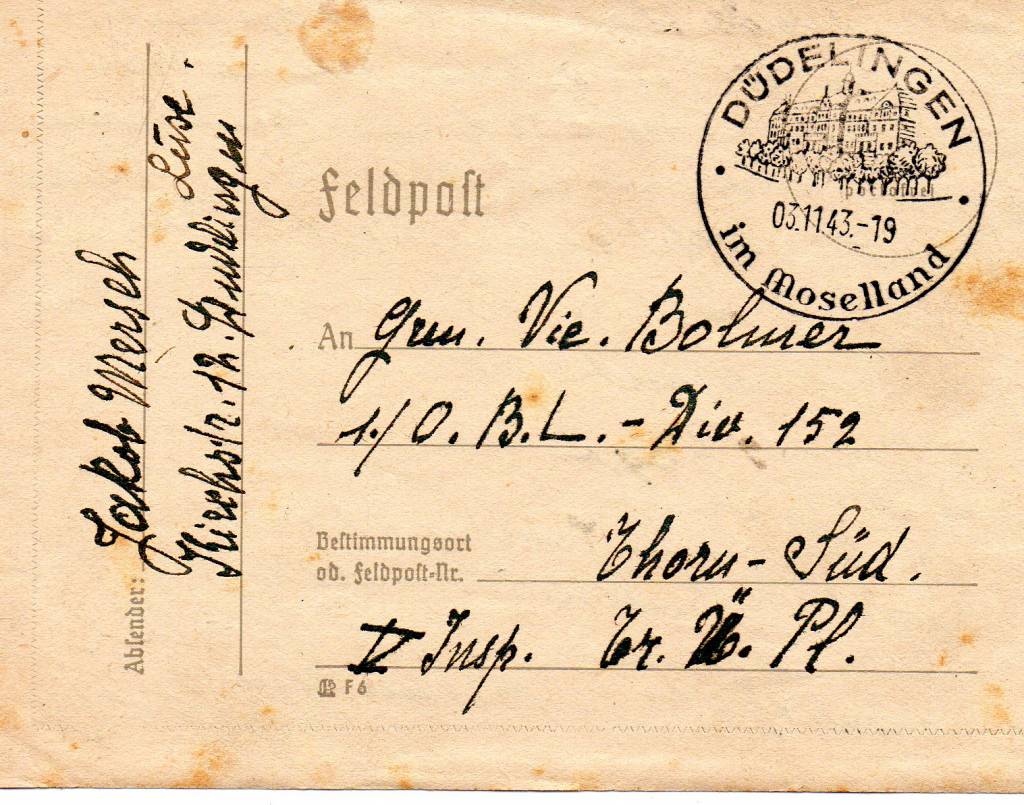 DÜDELINGEN
03.11.43.-19
im Moselland
Feldpost
An Gren. Vic. Bolmer
1./O. B.L.-Div. 152
Bestimmungsort
od. Feldpost-Nr. Thorn-Süd.
V Insp. Tr. Ü. Pl.
F 6
Absender: Jakob Mersch
Kirchstr. 12. Dudelingen